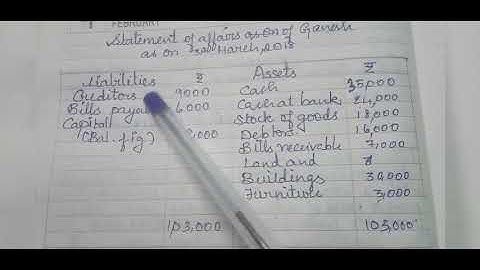 FEBRUARY
Statement of affairs as on of Ganesh
as on March, 2018
Liabilities ₹ Assets ₹
Creditors 9000 Cash
Bills 6,000 Cash at bank
Capital Stock of goods 18,000
(Bal. fig) Debtors 16,000
Bills receivable 7,000
Land and
Buildings
Furniture 3,000
103,000 103,000